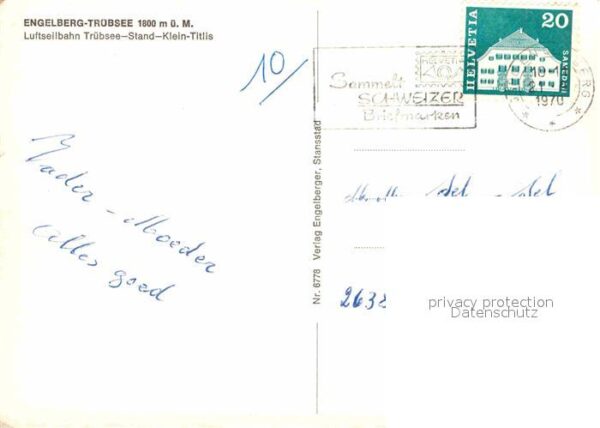 ENGELBERG-TRÜBSEE 1800 m ü. M.
Luftseilbahn Trübsee-Stand-Klein-Titlis
10/
Vader - Moeder
alles goed
Nr. 6778 Verlag Engelberger, Stansstad
Sammelt
SCHWEIZER
Briefmarken
HELVETIA
20
1970
2632
privacy protection
Datenschutz